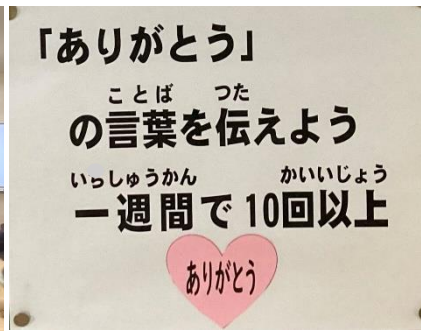 「ありがとう」
ことば つた
の言葉を伝えよう
いっしゅうかん かいいじょう
一週間で10回以上
ありがとう